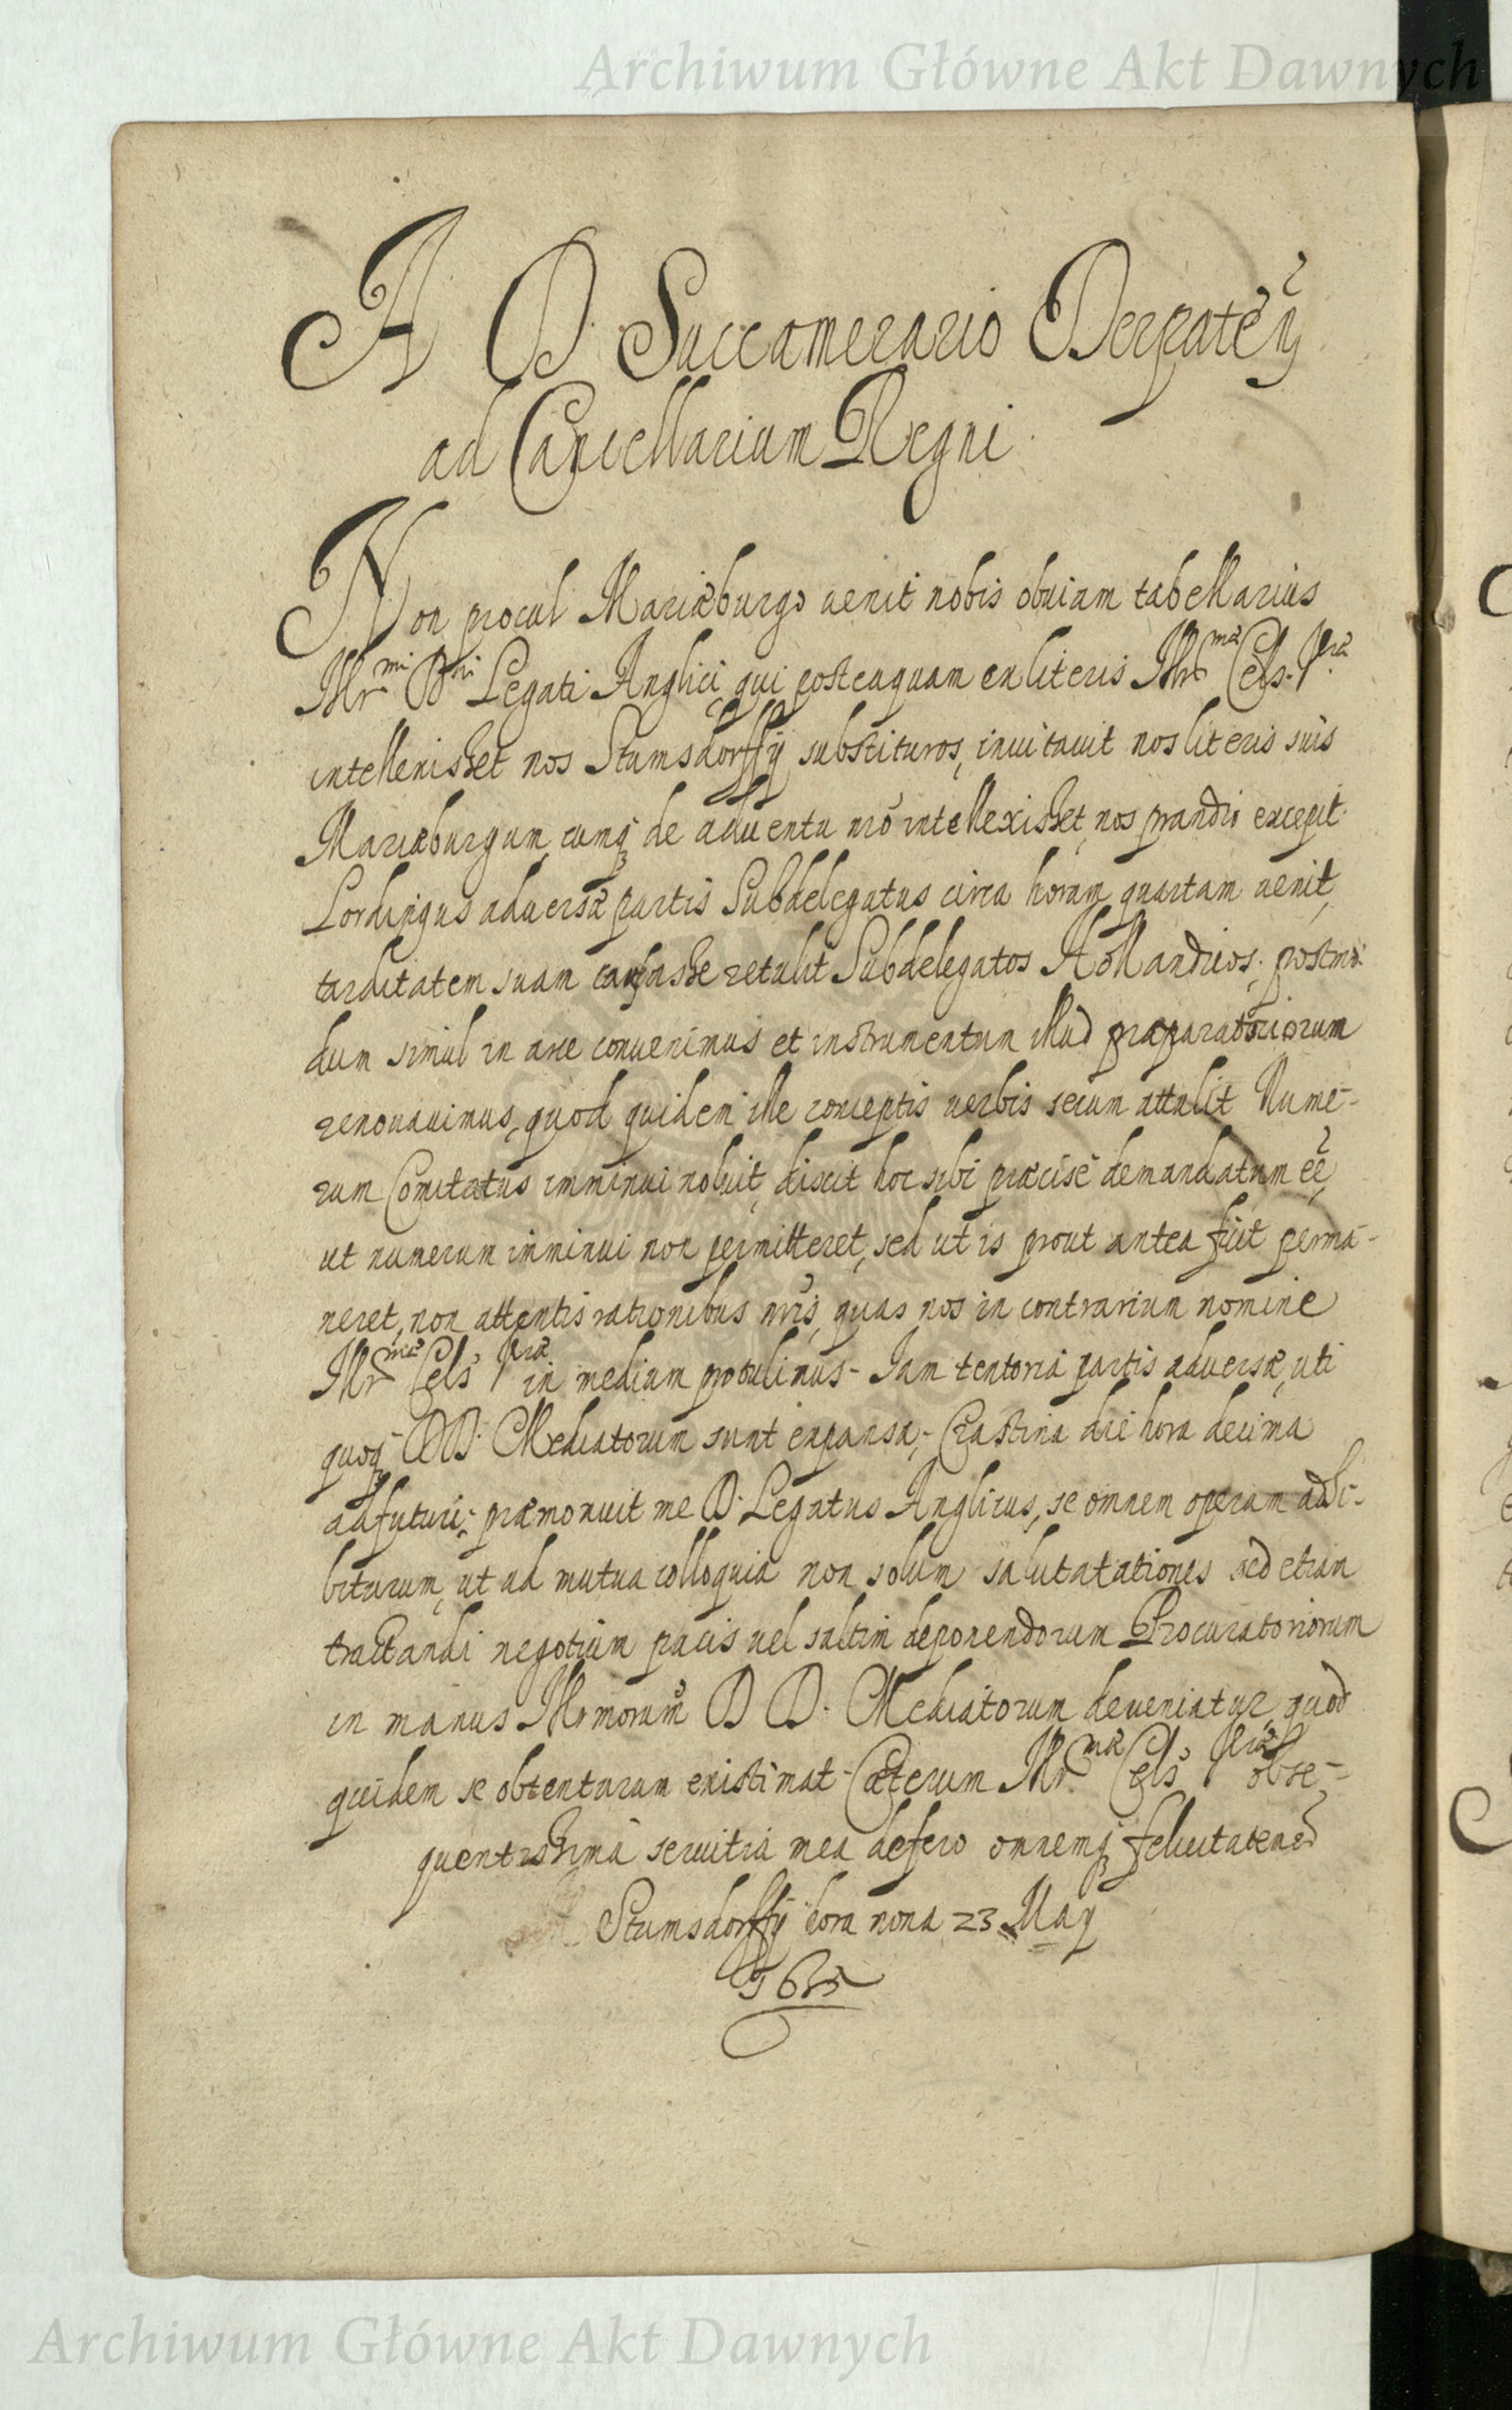 Archiwum Główne Akt Dawnych
A D. Succamerario Derpateñ
ad Cancellarium Regni
Non procul Mariæburgo uenit nobis obuiam tabellarius
Illr̃mi Dni Legati Anglici, qui posteaquam ex literis Illr̃mæ Cels. Vræ
intellexisset nos Stumsdorffij substituros, inuitauit nos literis suis
Mariæburgum, cumq; de aduentu nr̃o intellexisset, nos prandio excepit.
Lordingus aduersæ partis Subdelegatus circa horam quartam uenit,
tarditatem suam causasse retulit Subdelegatos Hollandicos; postmo-
dum simul in arce conuenimus et instrumentum illud præparatoriorum
renouauimus, quod quidem ille conceptis uerbis secum attulit Nume-
rum Comitatus imminui noluit, dixit hoc sibi præcise demandatum eẽ,
ut numerum imminui non permitteret, sed ut is prout antea fuit perma-
neret, non attentis rationibus nr̃is, quas nos in contrarium nomine
Illr̃mæ Cels. Vræ in medium protulimus - Iam tentoria partis aduersæ, uti
quoq; DD. Mediatorum sunt expansa; Crastina die hora decima
adfuturi; præmonuit me D. Legatus Anglicus, se omnem operam adhi-
biturum, ut ad mutua colloquia non solum salutatationes sed etiam
tractandi negotium pacis uel saltim deponendorum Procuratoriorum
in manus Illrmorum̃ D D. Mediatorum deueniatur, quod
quidem se obtenturum existimat - Cæterum Illr̃mæ Cels. Vræ obse-
quentissima seruitia mea defero omnemq; felicitatem
Stumsdorffij hora nona 23 May
1635
Archiwum Główne Akt Dawnych